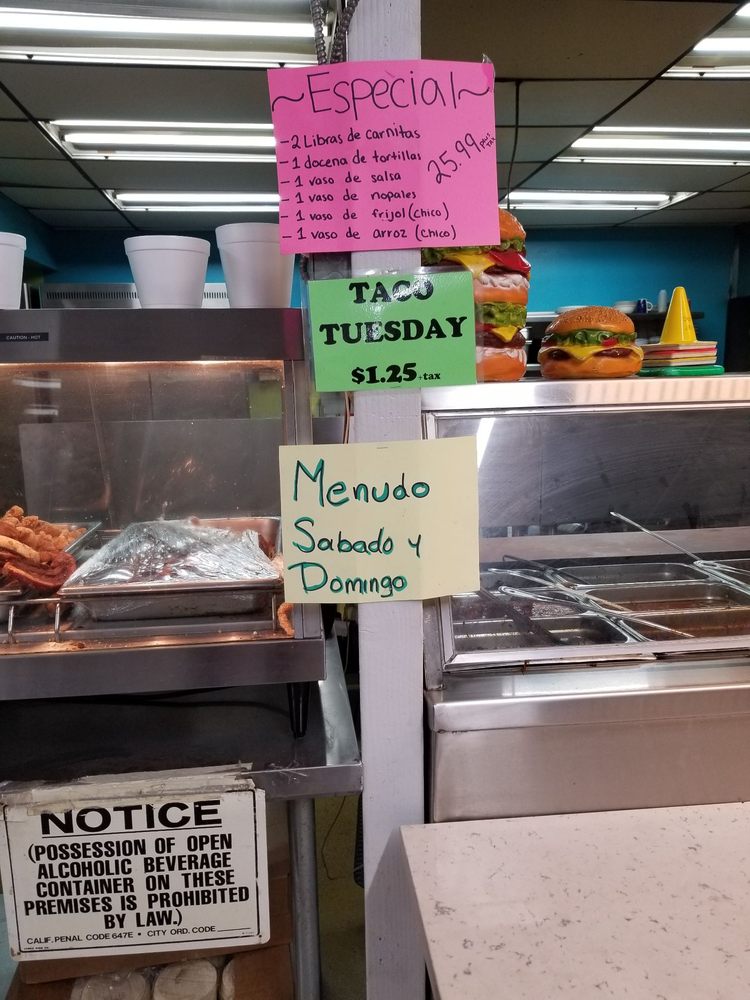 ~Especial~
-2 Libras de carnitas
-1 docena de tortillas
-1 vaso de salsa
-1 vaso de nopales
-1 vaso de frijol (chico)
-1 vaso de arroz (chico)
25.99 plus tax
TACO
TUESDAY
$1.25 +tax
Menudo
Sabado y
Domingo
CAUTION - HOT
NOTICE
(POSSESSION OF OPEN
ALCOHOLIC BEVERAGE
CONTAINER ON THESE
PREMISES IS PROHIBITED
BY LAW.)
CALIF. PENAL CODE 647E • CITY ORD. CODE